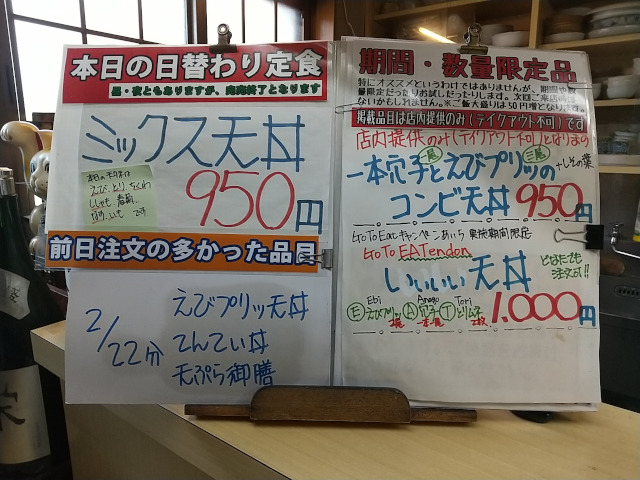 本日の日替わり定食
昼・夜ともありますが、完売終了となります
ミックス天丼
えび、とり、ちくわ
950円
前日注文の多かった品目
2/22分
えびプリッ天丼
てんてい丼
天ぷら御膳
期間・数量限定品
特にオススメというわけではありませんが、期間や数
量限定だったりお試しだったりします。次回ご来店時は
ないかもしれません。※ご飯大盛りは50円増となります。
掲載品目は店内提供のみ(テイクアウト不可)です
店内提供のみ(テイクアウト不可)となります
一本穴子とえびプリッの
+しその葉
コンビ天丼 950円
GoToEatキャンペーンあいち 実施期間限定
GoTo EATendon
いいいい天丼
どなたでも
注文可!!
Ebi Anago Tori
Ⓔえびプリッ Ⓐ穴子 Ⓣとりムネ
2尾 一本 2枚
1,000円